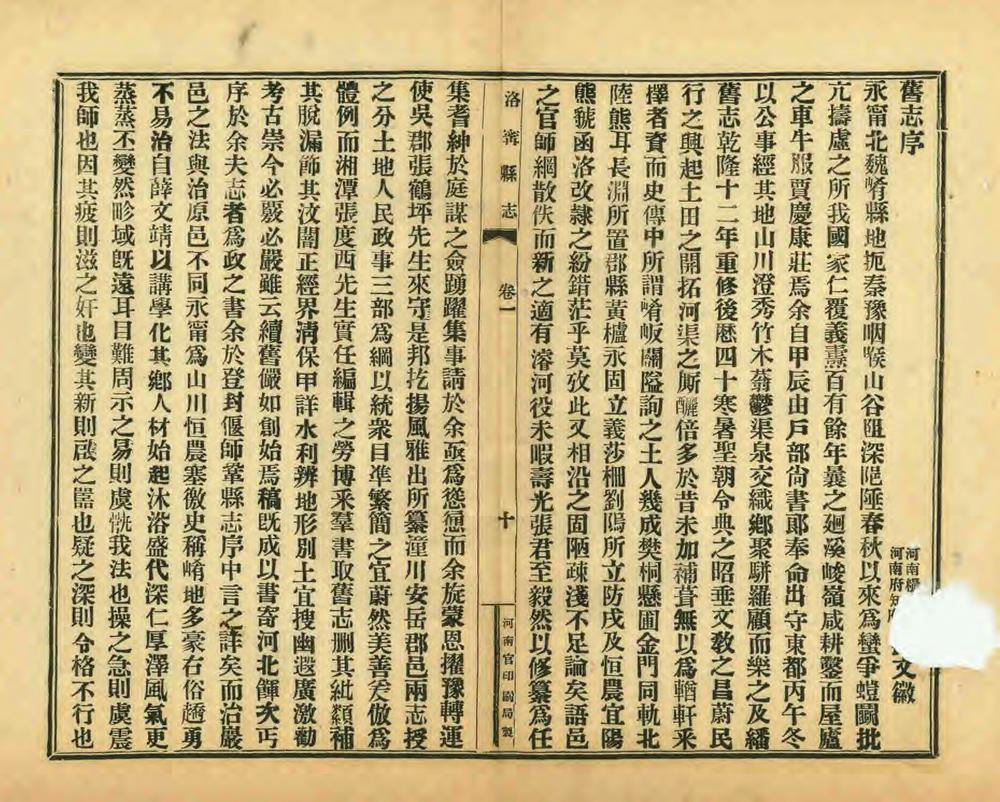 舊志序
河南糧
河南府知府
文徽
永甯北魏崤縣地扼秦豫咽喉山谷阻深阸陲春秋以來爲蠻爭螘鬭批
亢擣虛之所我國家仁覆義燾百有餘年曩之廻溪峻嶺咸耕鑿而屋廬
之車牛服賈慶康莊焉余自甲辰由戶部尙書郞奉命出守東都丙午冬
以公事經其地山川澄秀竹木蓊鬱渠泉交織鄉聚駢羅顧而樂之及繙
舊志乾隆十二年重修後歷四十寒暑聖朝令典之昭垂文敎之昌蔚民
行之興起土田之開拓河渠之厮釃倍多於昔未加補葺無以爲輶軒采
擇者資而史傳中所謂崤岅關隘詢之土人幾成樊桐懸圃金門同軌北
陸熊耳長淵所置郡縣黃櫨永固立義莎柵劉陽所立防戍及恒農宜陽
熊虢函洛改隸之紛錯茫乎莫攷此又相沿之固陋疎淺不足論矣語邑
之官師綱散佚而新之適有濬河役未暇壽光張君至毅然以修纂爲任
洛甯縣志
卷一
十
河南官印刷局製
集耆紳於庭謀之僉踴躍集事請於余亟爲慫恿而余旋蒙恩擢豫轉運
使吳郡張鶴坪先生來守是邦扢揚風雅出所纂潼川安岳郡邑兩志授
之分土地人民政事三部爲綱以統衆目準繁簡之宜蔚然美善矣倣爲
體例而湘潭張度西先生實任編輯之勞博釆羣書取舊志刪其紕纇補
其脫漏飾其汶闇正經界清保甲詳水利辨地形別土宜搜幽遐廣激勸
考古崇今必覈必嚴雖云續舊儼如創始焉稿旣成以書寄河北踵次丐
序於余夫志者爲政之書余於登封偃師鞏縣志序中言之詳矣而治嚴
邑之法與治原邑不同永甯爲山川恒農塞徼史稱崤地多豪右俗趫勇
不易治自薛文靖以講學化其鄉人材始起沐浴盛代深仁厚澤風氣更
蒸蒸丕變然畛域旣遠耳目難周示之易則虞恍我法也操之急則虞震
我師也因其疲則滋之奸也變其新則啟之嚚也疑之深則令格不行也